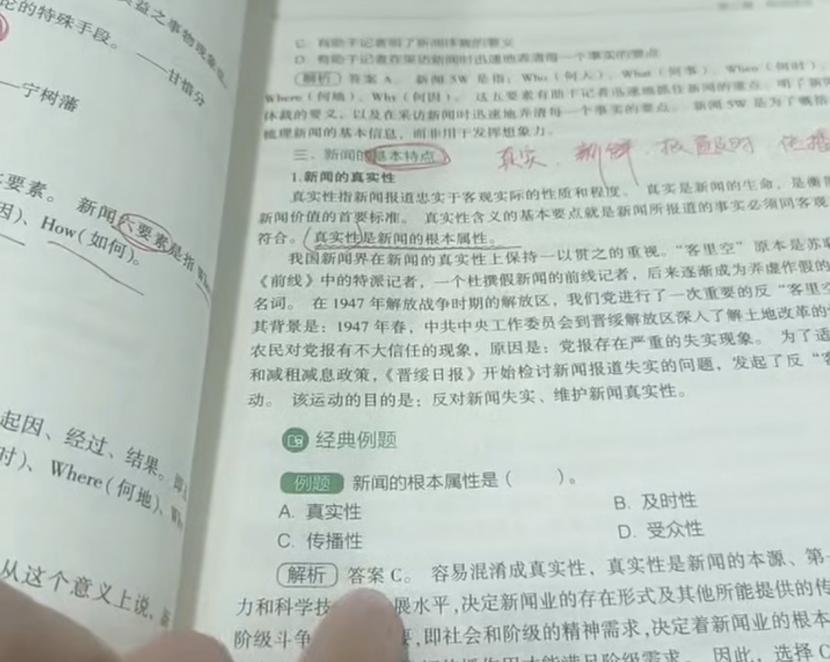 论的特殊手段。
——甘惜分
——宁树藩
要素。 新闻六要素是指
因)、How(如何)。
起因、经过、结果。
时)、Where(何地)、
从这个意义上说,
C. 有助于记者明了新闻体裁的要义
D. 有助于记者在采访新闻时迅速地弄清每一个事实的要点
解析 答案 A。 新闻 5W 是指:Who(何人)、What(何事)、When(何时)、
Where(何地)、Why(何因)。 这五要素有助于记者迅速地抓住新闻的重点,明了新
体裁的要义,以及在采访新闻时迅速地弄清每一个事实的要点。 新闻 5W 是为了概括
梳理新闻的基本信息,而非用于发挥想象力。
三、新闻的基本特点 真实、新鲜、报道及时、传播
1.新闻的真实性
真实性指新闻报道忠实于客观实际的性质和程度。 真实是新闻的生命,是衡
新闻价值的首要标准。 真实性含义的基本要点就是新闻所报道的事实必须同客观
符合。 真实性是新闻的根本属性。
我国新闻界在新闻的真实性上保持一以贯之的重视。“客里空”原本是苏
《前线》中的特派记者,一个杜撰假新闻的前线记者,后来逐渐成为弄虚作假的
名词。 在 1947 年解放战争时期的解放区,我们党进行了一次重要的反“客里空
其背景是:1947 年春,中共中央工作委员会到晋绥解放区深入了解土地改革的
农民对党报有不大信任的现象,原因是:党报存在严重的失实现象。 为了适
和减租减息政策,《晋绥日报》开始检讨新闻报道失实的问题,发起了反“客
动。 该运动的目的是:反对新闻失实、维护新闻真实性。
经典例题
例题 新闻的根本属性是( )。
A. 真实性 B. 及时性
C. 传播性 D. 受众性
解析 答案 C。 容易混淆成真实性,真实性是新闻的本源、第一
力和科学技 展水平,决定新闻业的存在形式及其他所能提供的传
阶级斗争 要,即社会和阶级的精神需求,决定着新闻业的根本
能满足阶级需求。 因此,选择 C